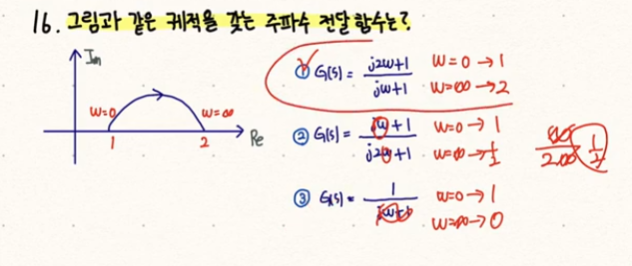 16. 그림과 같은 궤적을 갖는 주파수 전달함수는?
Im
w=0
w=∞
1
2
Re
① G(s) = j2w+1 / jw+1
w=0 → 1
w=∞ → 2
② G(s) = jw+1 / j2w+1
w=0 → 1
w=∞ → 1/2
∞ / 2.∞
1/2
③ G(s) = 1 / jw+1
w=0 → 1
w=∞ → 0